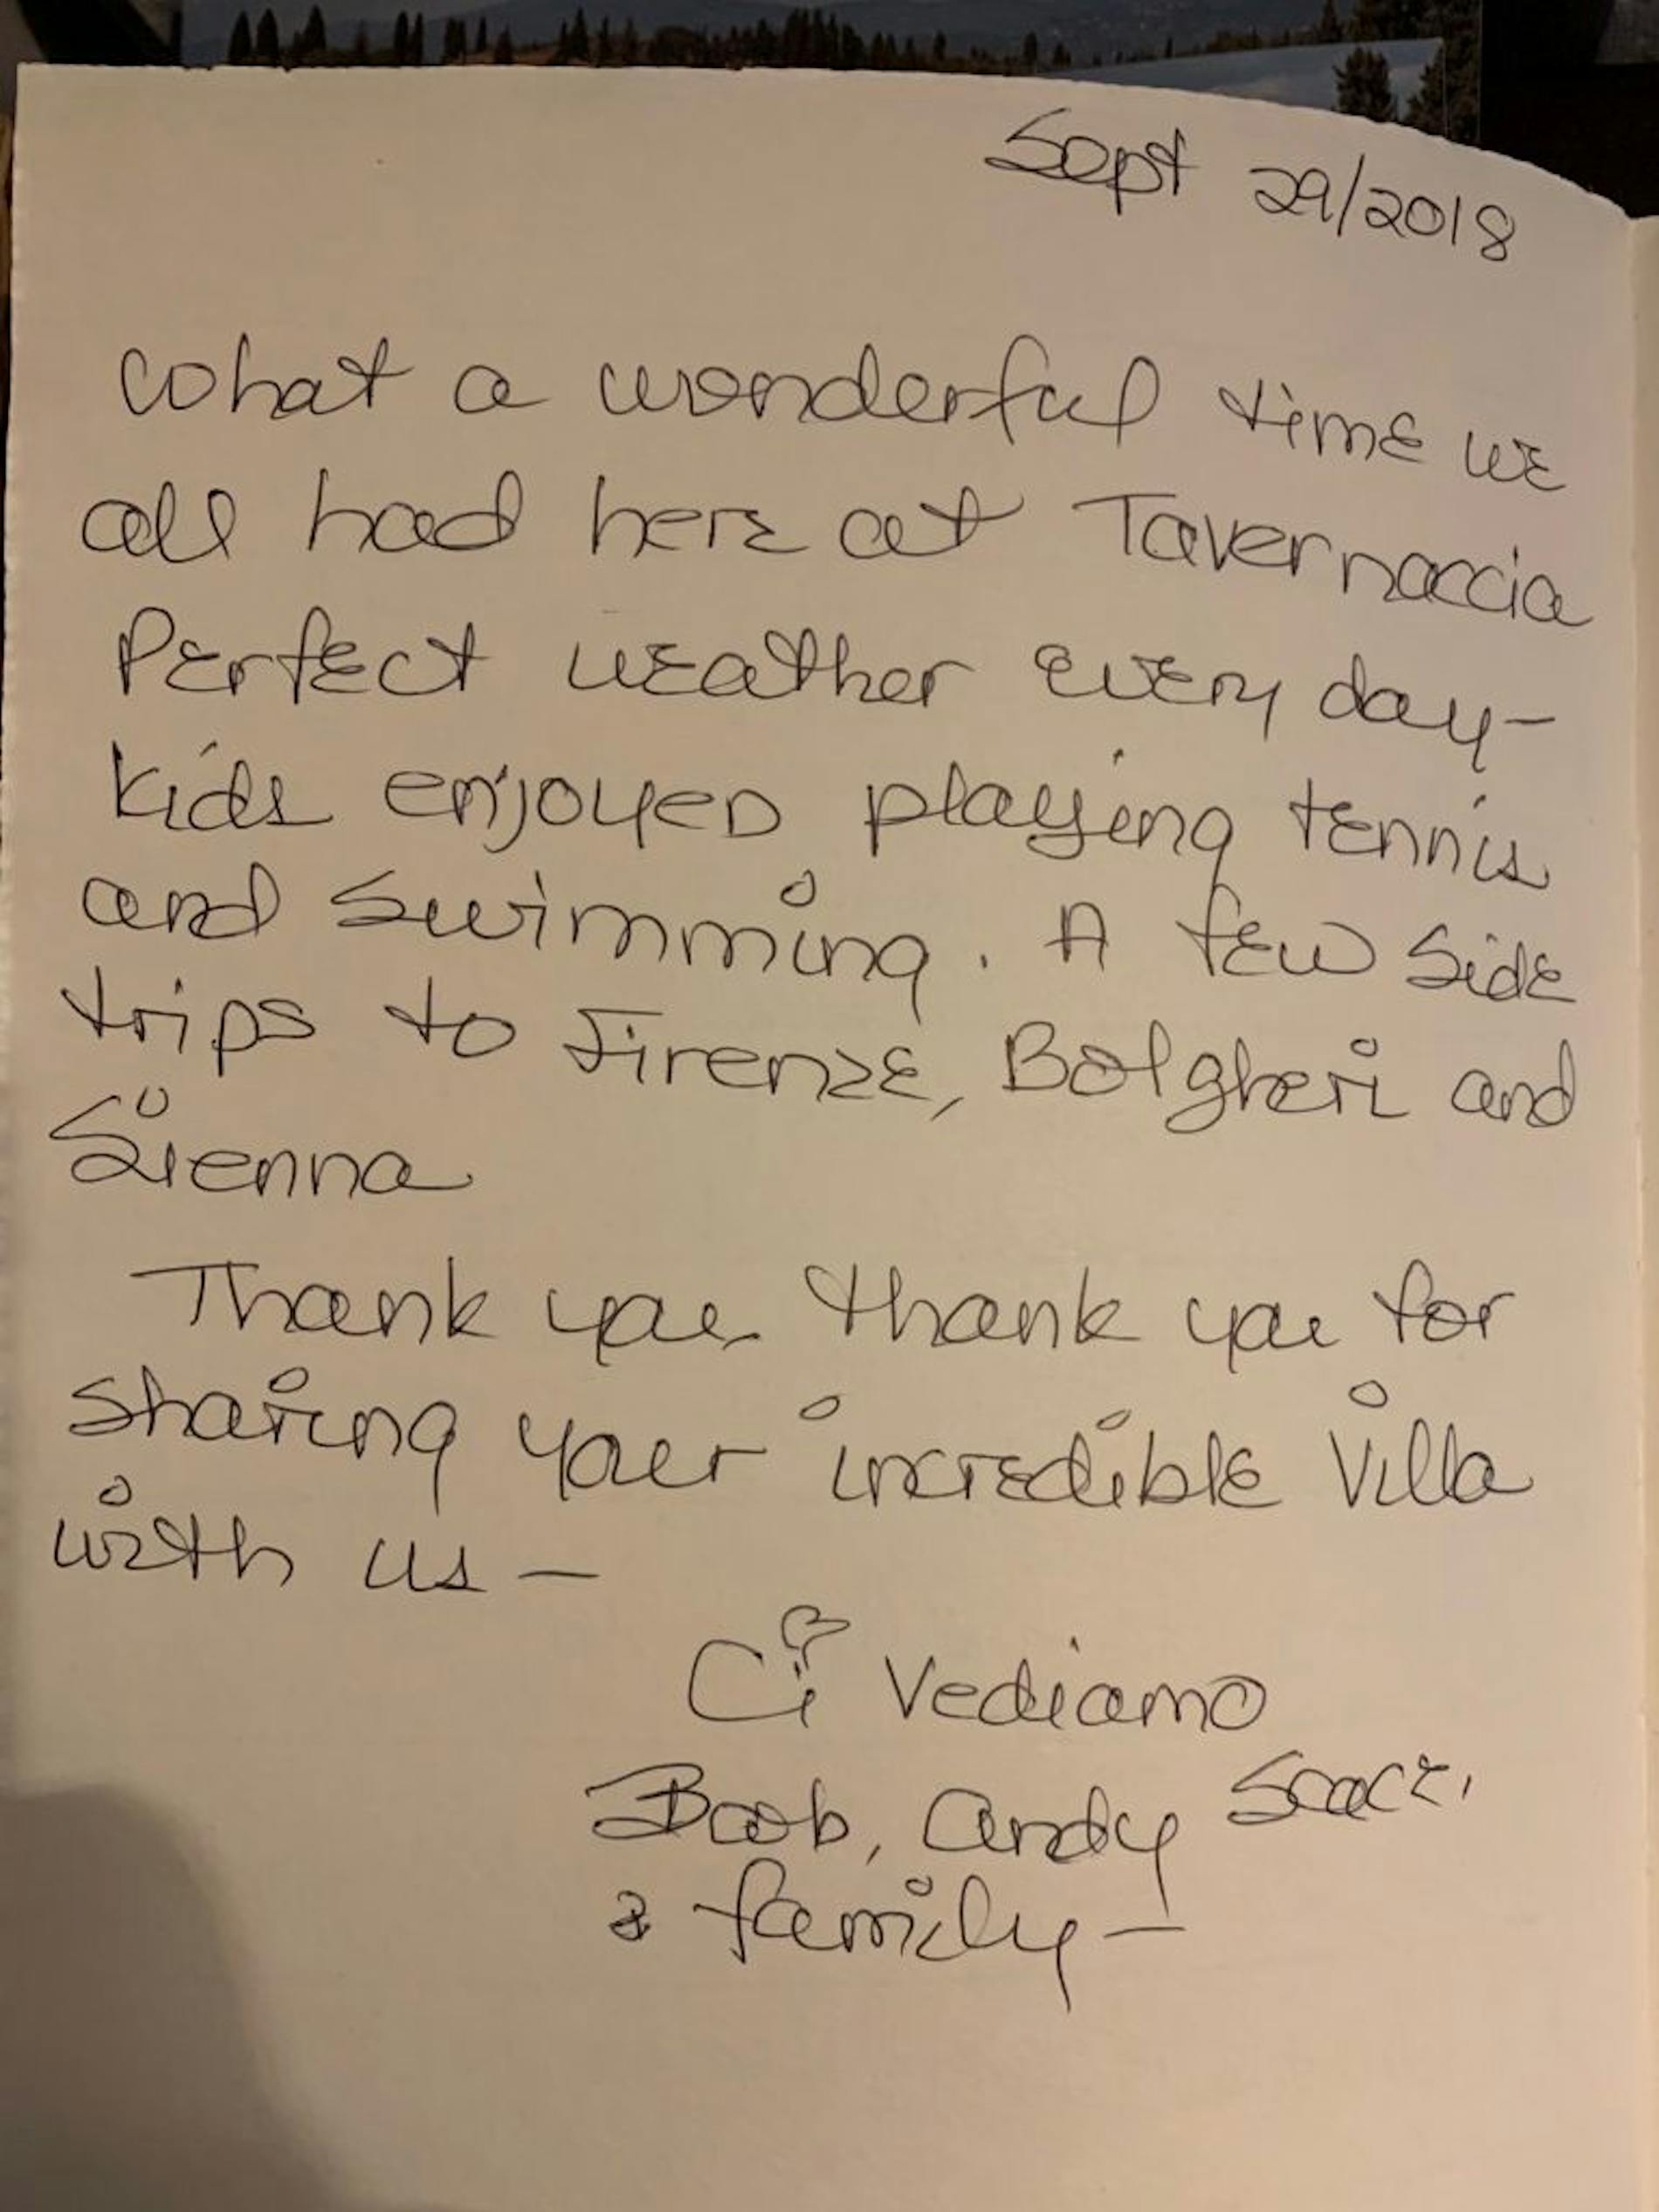 Sept 29/2018
What a wonderful time we
all had here at Tavernaccia
Perfect weather every day-
kids enjoyed playing tennis
and swimming. A few side
trips to Firenze, Bolgheri and
Sienna
Thank you, thank you for
sharing your incredible Villa
with us —
Ci Vediamo
Bob, Andy
& family —